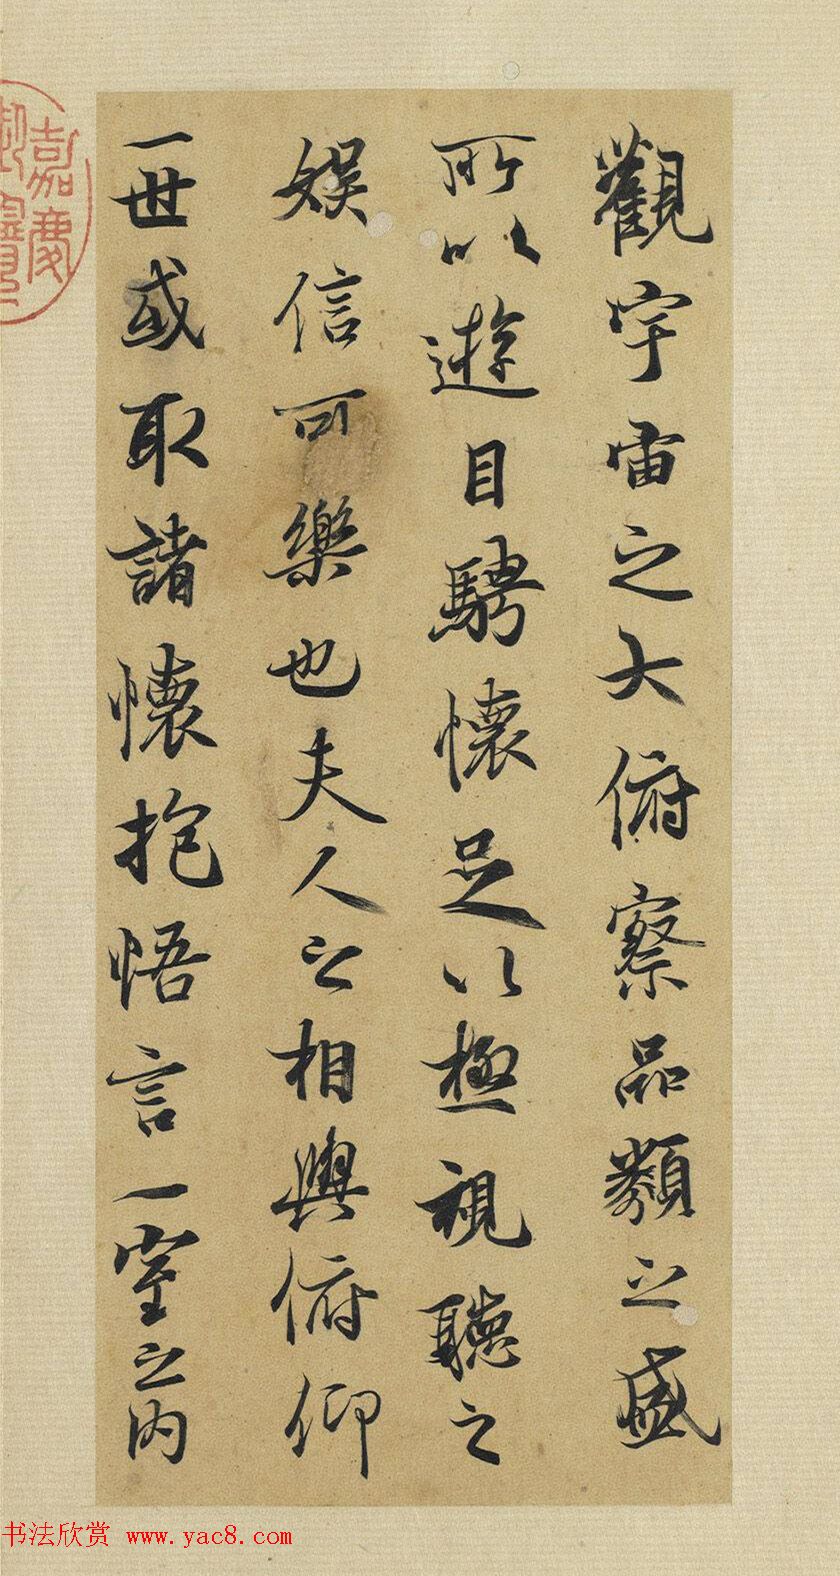 觀宇宙之大俯察品類之盛
所以遊目騁懷足以極視聽之
娛信可樂也夫人之相與俯仰
一世或取諸懷抱悟言一室之內
嘉慶御覽之寶
书法欣赏 www.yac8.com